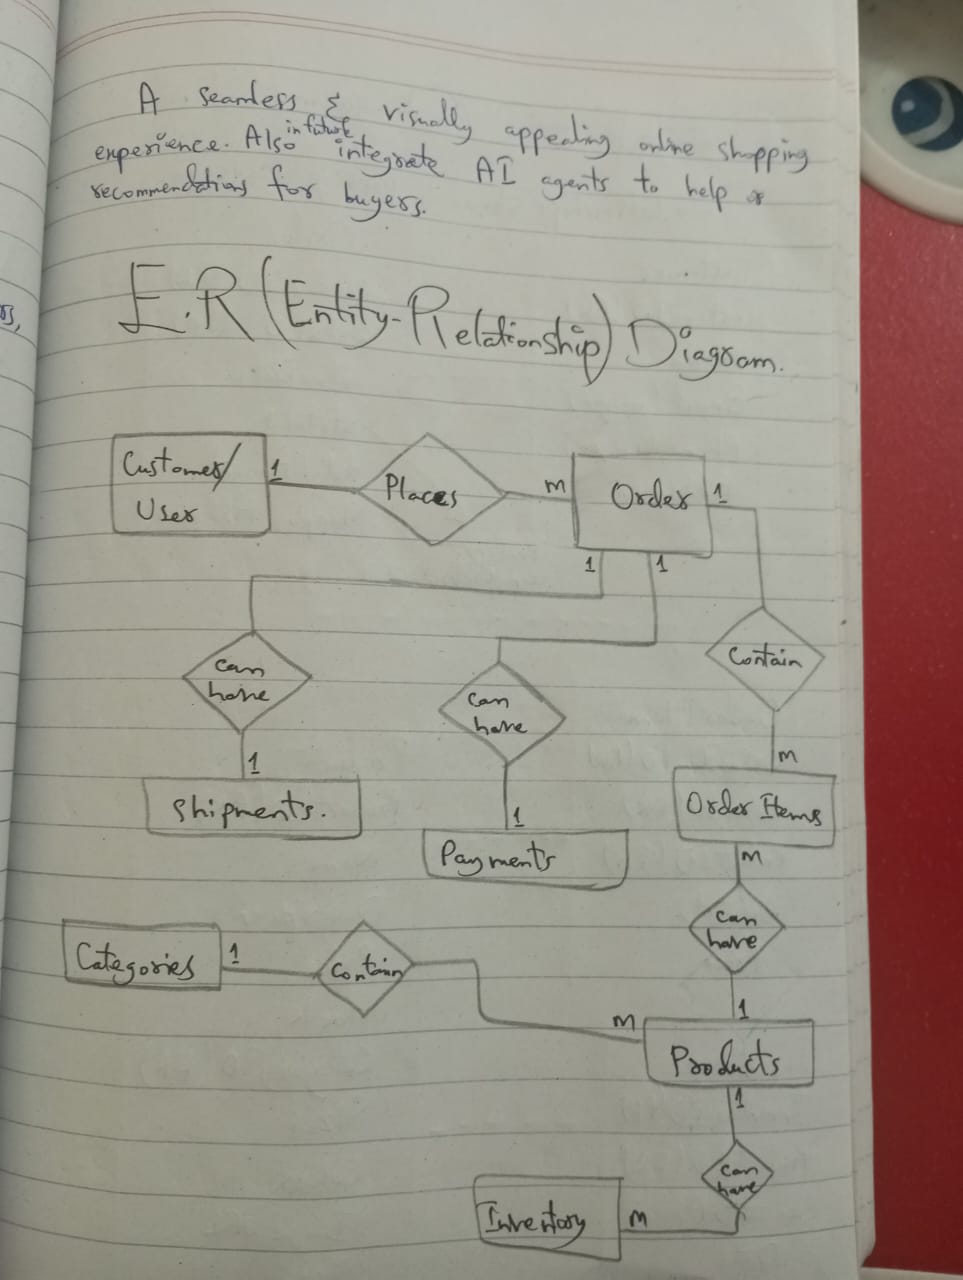 A seamless & visually appealing online shopping
experience. Also in future integrate AI agents to help or
recommendations for buyers.
E.R (Entity-Relationship) Diagram.
Customer/
User
1
Places
M
Order
1
1
1
Can
have
Can
have
Contain
1
Shipments.
1
Payments
M
Order Items
M
Can
have
Categories
1
Contain
M
1
Products
1
Can
have
Inventory
M